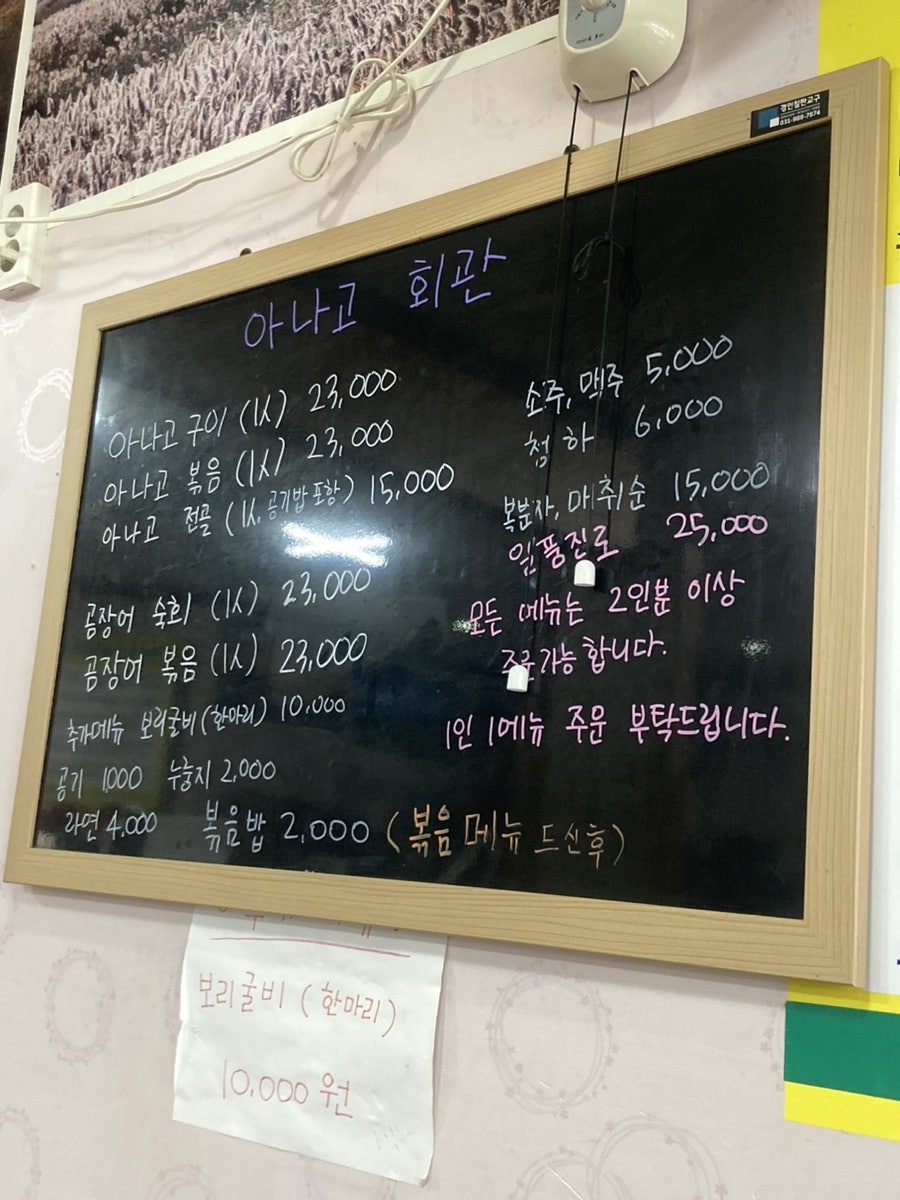 경인칠판교구
031-969-7874
아나고 회관
아나고 구이 (1人) 23,000
아나고 볶음 (1人) 23,000
아나고 전골 (1人, 공기밥 포함) 15,000
곰장어 숙회 (1人) 23,000
곰장어 볶음 (1人) 23,000
추가메뉴 보리굴비 (한마리) 10,000
공기 1,000 누룽지 2,000
라면 4,000 볶음밥 2,000 (볶음 메뉴 드신후)
소주, 맥주 5,000
청하 6,000
복분자, 매취순 15,000
일품진로 25,000
모든 메뉴는 2인분 이상
주문가능 합니다.
1인 1메뉴 주문 부탁드립니다.
보리굴비 (한마리)
10,000원